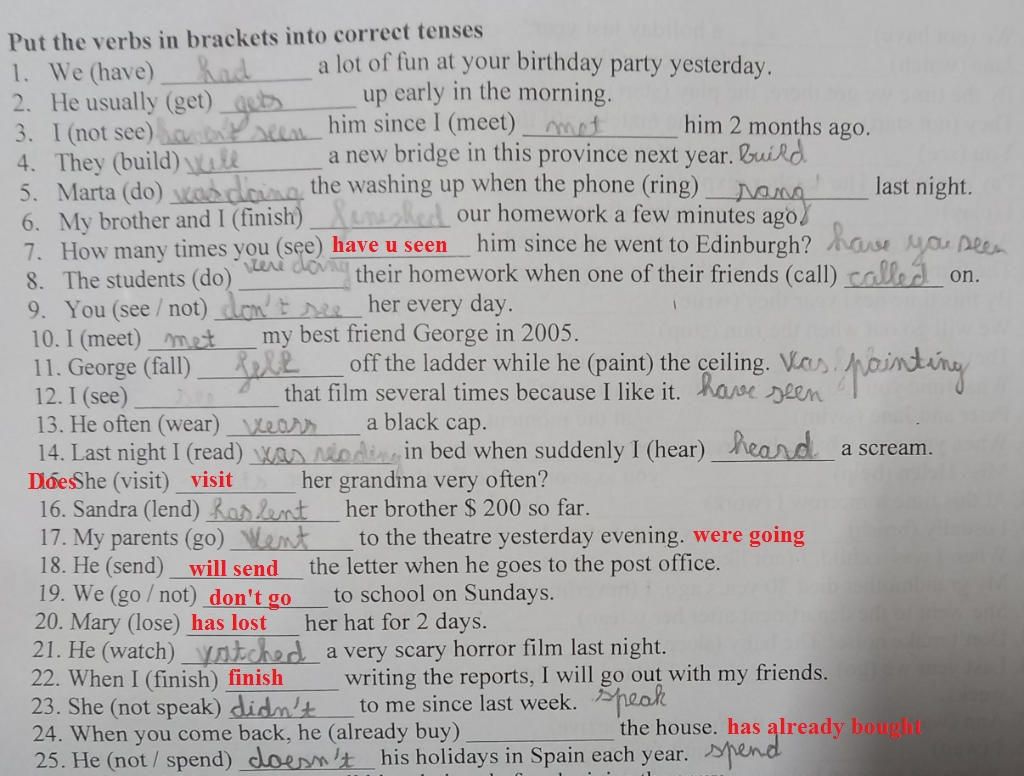 Put the verbs in brackets into correct tenses
1. We (have) had a lot of fun at your birthday party yesterday.
2. He usually (get) gets up early in the morning.
3. I (not see) haven't seen him since I (meet) met him 2 months ago.
4. They (build) will a new bridge in this province next year. Build
5. Marta (do) was doing the washing up when the phone (ring) rang last night.
6. My brother and I (finish) finished our homework a few minutes ago.
7. How many times you (see) have u seen him since he went to Edinburgh? have you seen
8. The students (do) were doing their homework when one of their friends (call) called on.
9. You (see / not) don't see her every day.
10. I (meet) met my best friend George in 2005.
11. George (fall) fell off the ladder while he (paint) the ceiling. Was painting
12. I (see) see that film several times because I like it. have seen
13. He often (wear) wears a black cap.
14. Last night I (read) was reading in bed when suddenly I (hear) heard a scream.
Does She (visit) visit her grandma very often?
16. Sandra (lend) has lent her brother $ 200 so far.
17. My parents (go) Went to the theatre yesterday evening. were going
18. He (send) will send the letter when he goes to the post office.
19. We (go / not) don't go to school on Sundays.
20. Mary (lose) has lost her hat for 2 days.
21. He (watch) watched a very scary horror film last night.
22. When I (finish) finish writing the reports, I will go out with my friends.
23. She (not speak) didn't to me since last week. speak
24. When you come back, he (already buy) the house. has already bought
25. He (not / spend) doesn't his holidays in Spain each year. spend